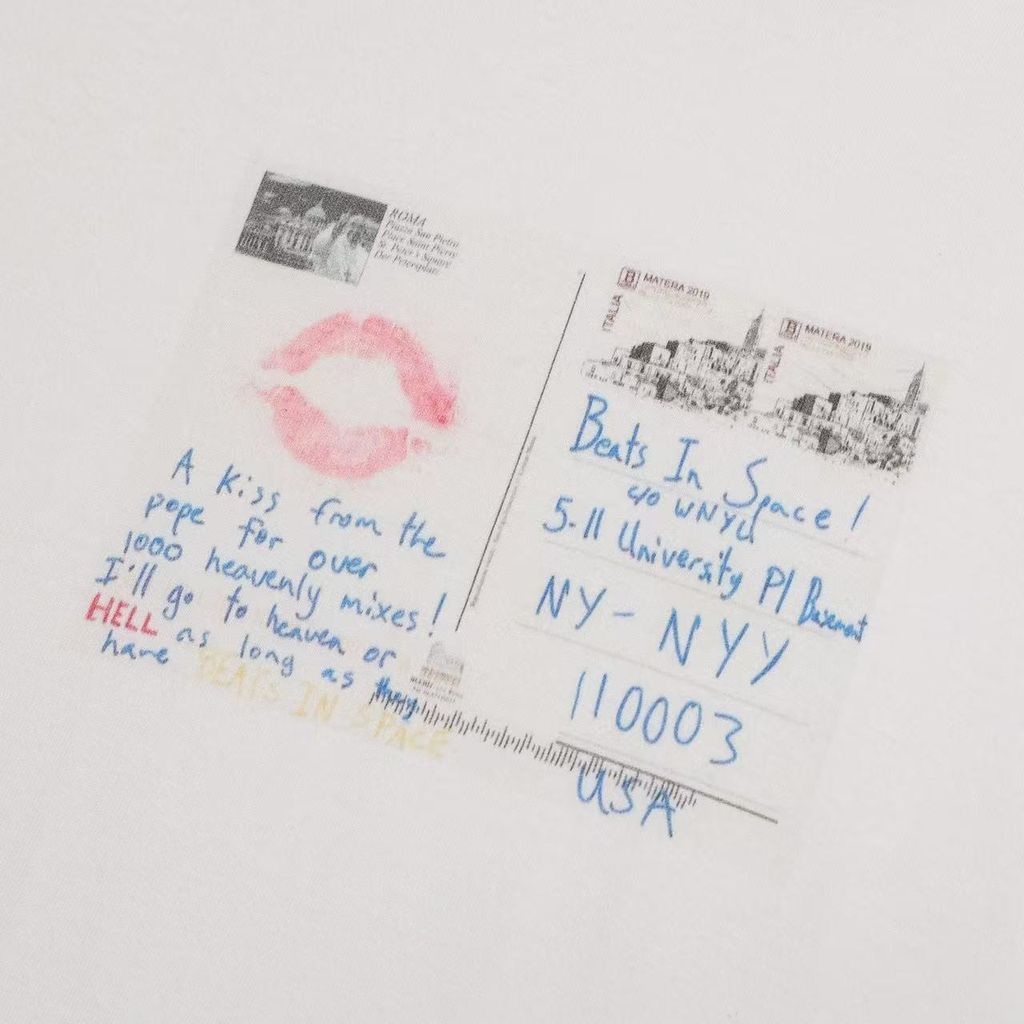 ROMA
Piazza San Pietro
Place Saint Pierre
St. Peter's Square
Der Petersplatz
A kiss from the
pope for over
1000 heavenly mixes!
I'll go to heaven or
HELL as long as they
have BEATS IN SPACE
B MATERA 2019
ITALIA
B MATERA 2019
ITALIA
Beats In Space!
c/o WNYU
5-11 University Pl Basement
NY - NYY
110003
USA